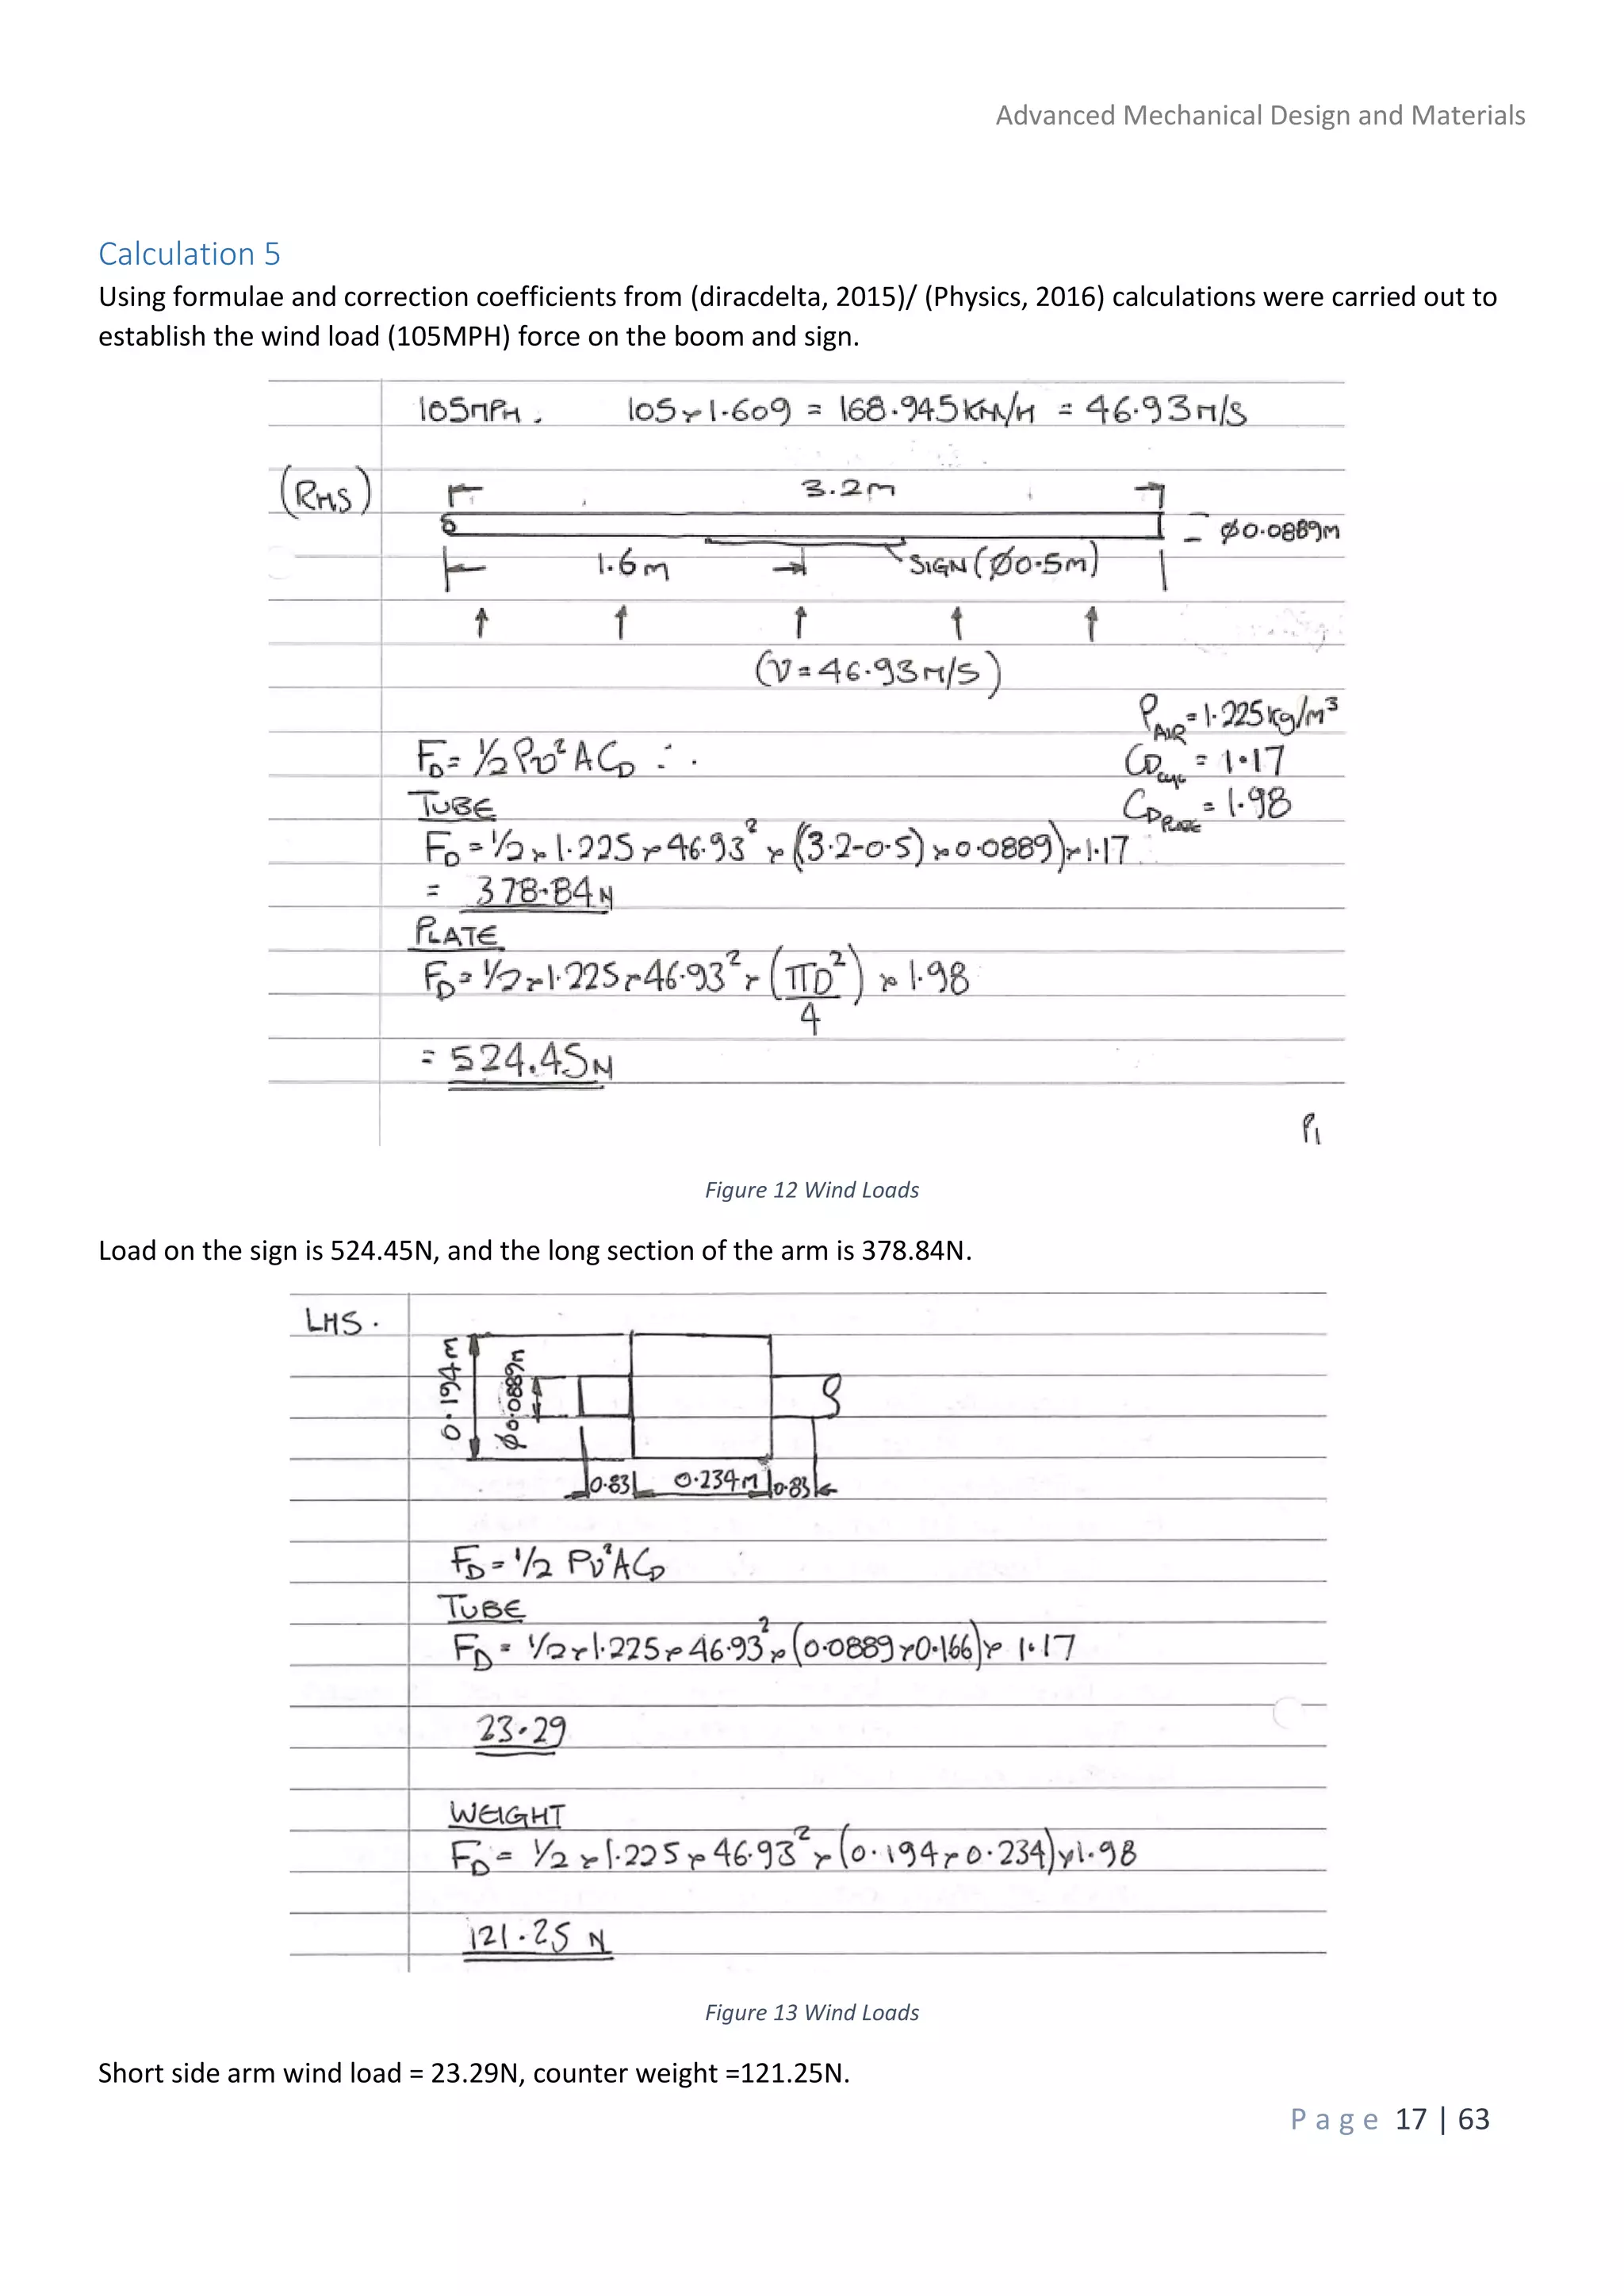 Advanced Mechanical Design and Materials
Calculation 5
Using formulae and correction coefficients from (diracdelta, 2015)/ (Physics, 2016) calculations were carried out to
establish the wind load (105MPH) force on the boom and sign.
105MPH. 105×1.609 = 168.945KM/H = 46.93M/S
(RHS)
3.2m
Ø0.0889m
1.6m SIGN (Ø0.5m)
(V=46.93M/S)
ρAIR = 1.225kg/m³
FD = ½ρv²ACD ∴
CDcyl = 1.17
TUBE
CDPLATE = 1.98
FD = ½×1.225×46.93²×((3.2-0.5)×0.0889)×1.17
= 378.84N
PLATE
FD = ½×1.225×46.93²×(πD²/4)×1.98
= 524.45N
P1
Figure 12 Wind Loads
Load on the sign is 524.45N, and the long section of the arm is 378.84N.
LHS.
0.194m
Ø0.0889m
0.83 0.234m 0.83
FD = ½ρv²ACD
TUBE
FD = ½×1.225×46.93²×(0.0889×0.166)×1.17
23.29
WEIGHT
FD = ½×1.225×46.93²×(0.194×0.234)×1.98
121.25 N
Figure 13 Wind Loads
Short side arm wind load = 23.29N, counter weight =121.25N.
Page 17 | 63